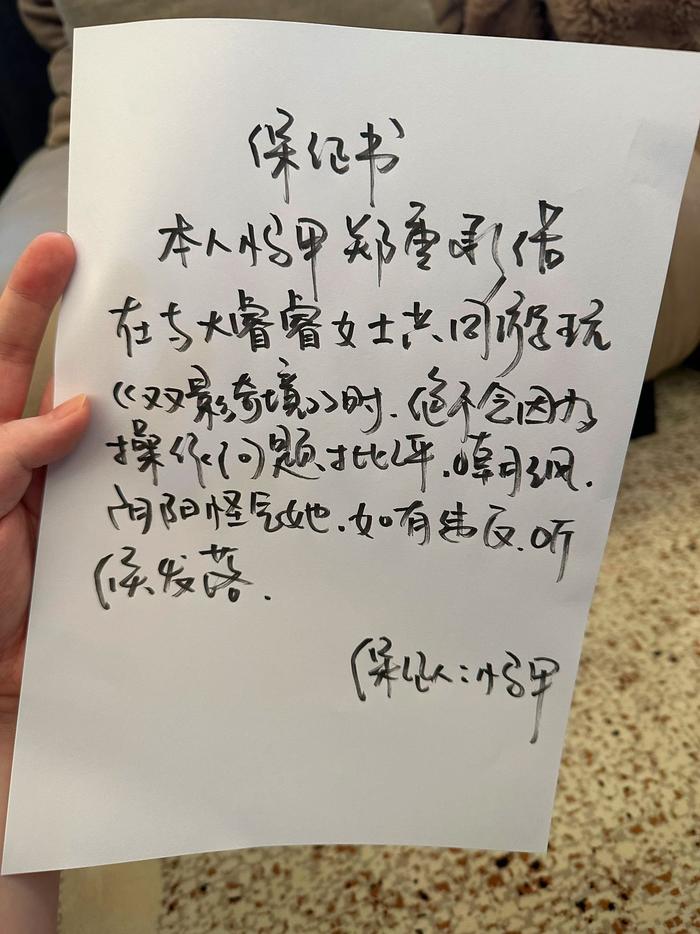 保证书
本人 郑重承诺
在与大睿睿女士共同游玩
《双影奇境》时.绝不会因为
操作问题.批评.嘲讽.
阴阳怪气她.如有违反.听
候发落.
保证人: